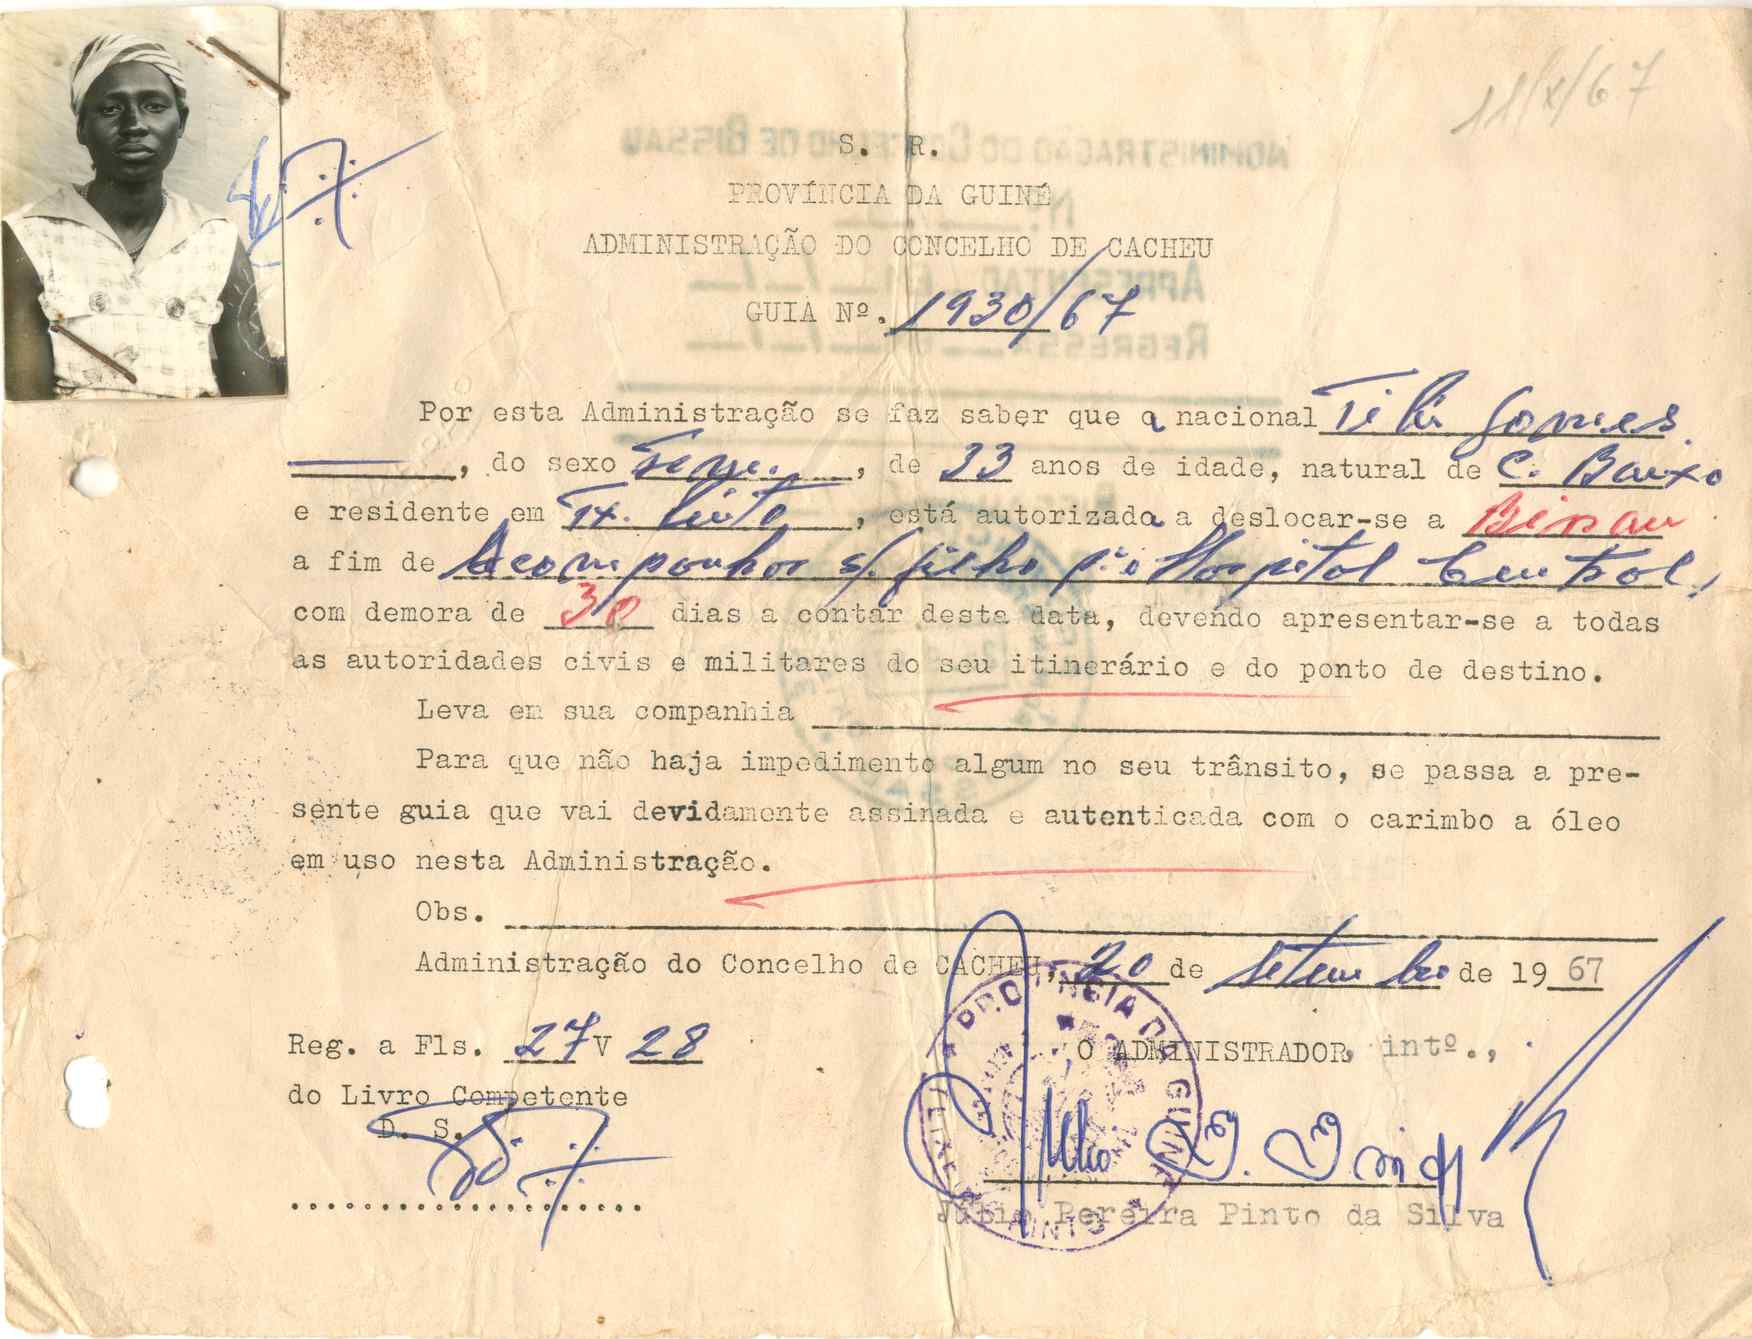 11/X/67
S. R.
PROVÍNCIA DA GUINÉ
ADMINISTRAÇÃO DO CONCELHO DE CACHEU
GUIA Nº. 1930/67
Por esta Administração se faz saber que a nacional Gomes
, do sexo Fem. , de 33 anos de idade, natural de C. Baixo
e residente em , está autorizada a deslocar-se a Bissau
a fim de Acompanhar s/. filho p.ª o Hospital Central,
com demora de 30 dias a contar desta data, devendo apresentar-se a todas
as autoridades civis e militares do seu itinerário e do ponto de destino.
Leva em sua companhia
Para que não haja impedimento algum no seu trânsito, se passa a pre-
sente guia que vai devidamente assinada e autenticada com o carimbo a óleo
em uso nesta Administração.
Obs.
Administração do Concelho de CACHEU, 20 de Setembro de 1967
Reg. a Fls. 27V 28
do Livro Competente
D. S.
O ADMINISTRADOR, intº.,
Júlio Pereira Pinto da Silva
PROVÍNCIA DA GUINÉ
ADMINISTRAÇÃO DO CONCELHO DE BISSAU
Nº.
APRESENTAÇÃO
REGRESSA